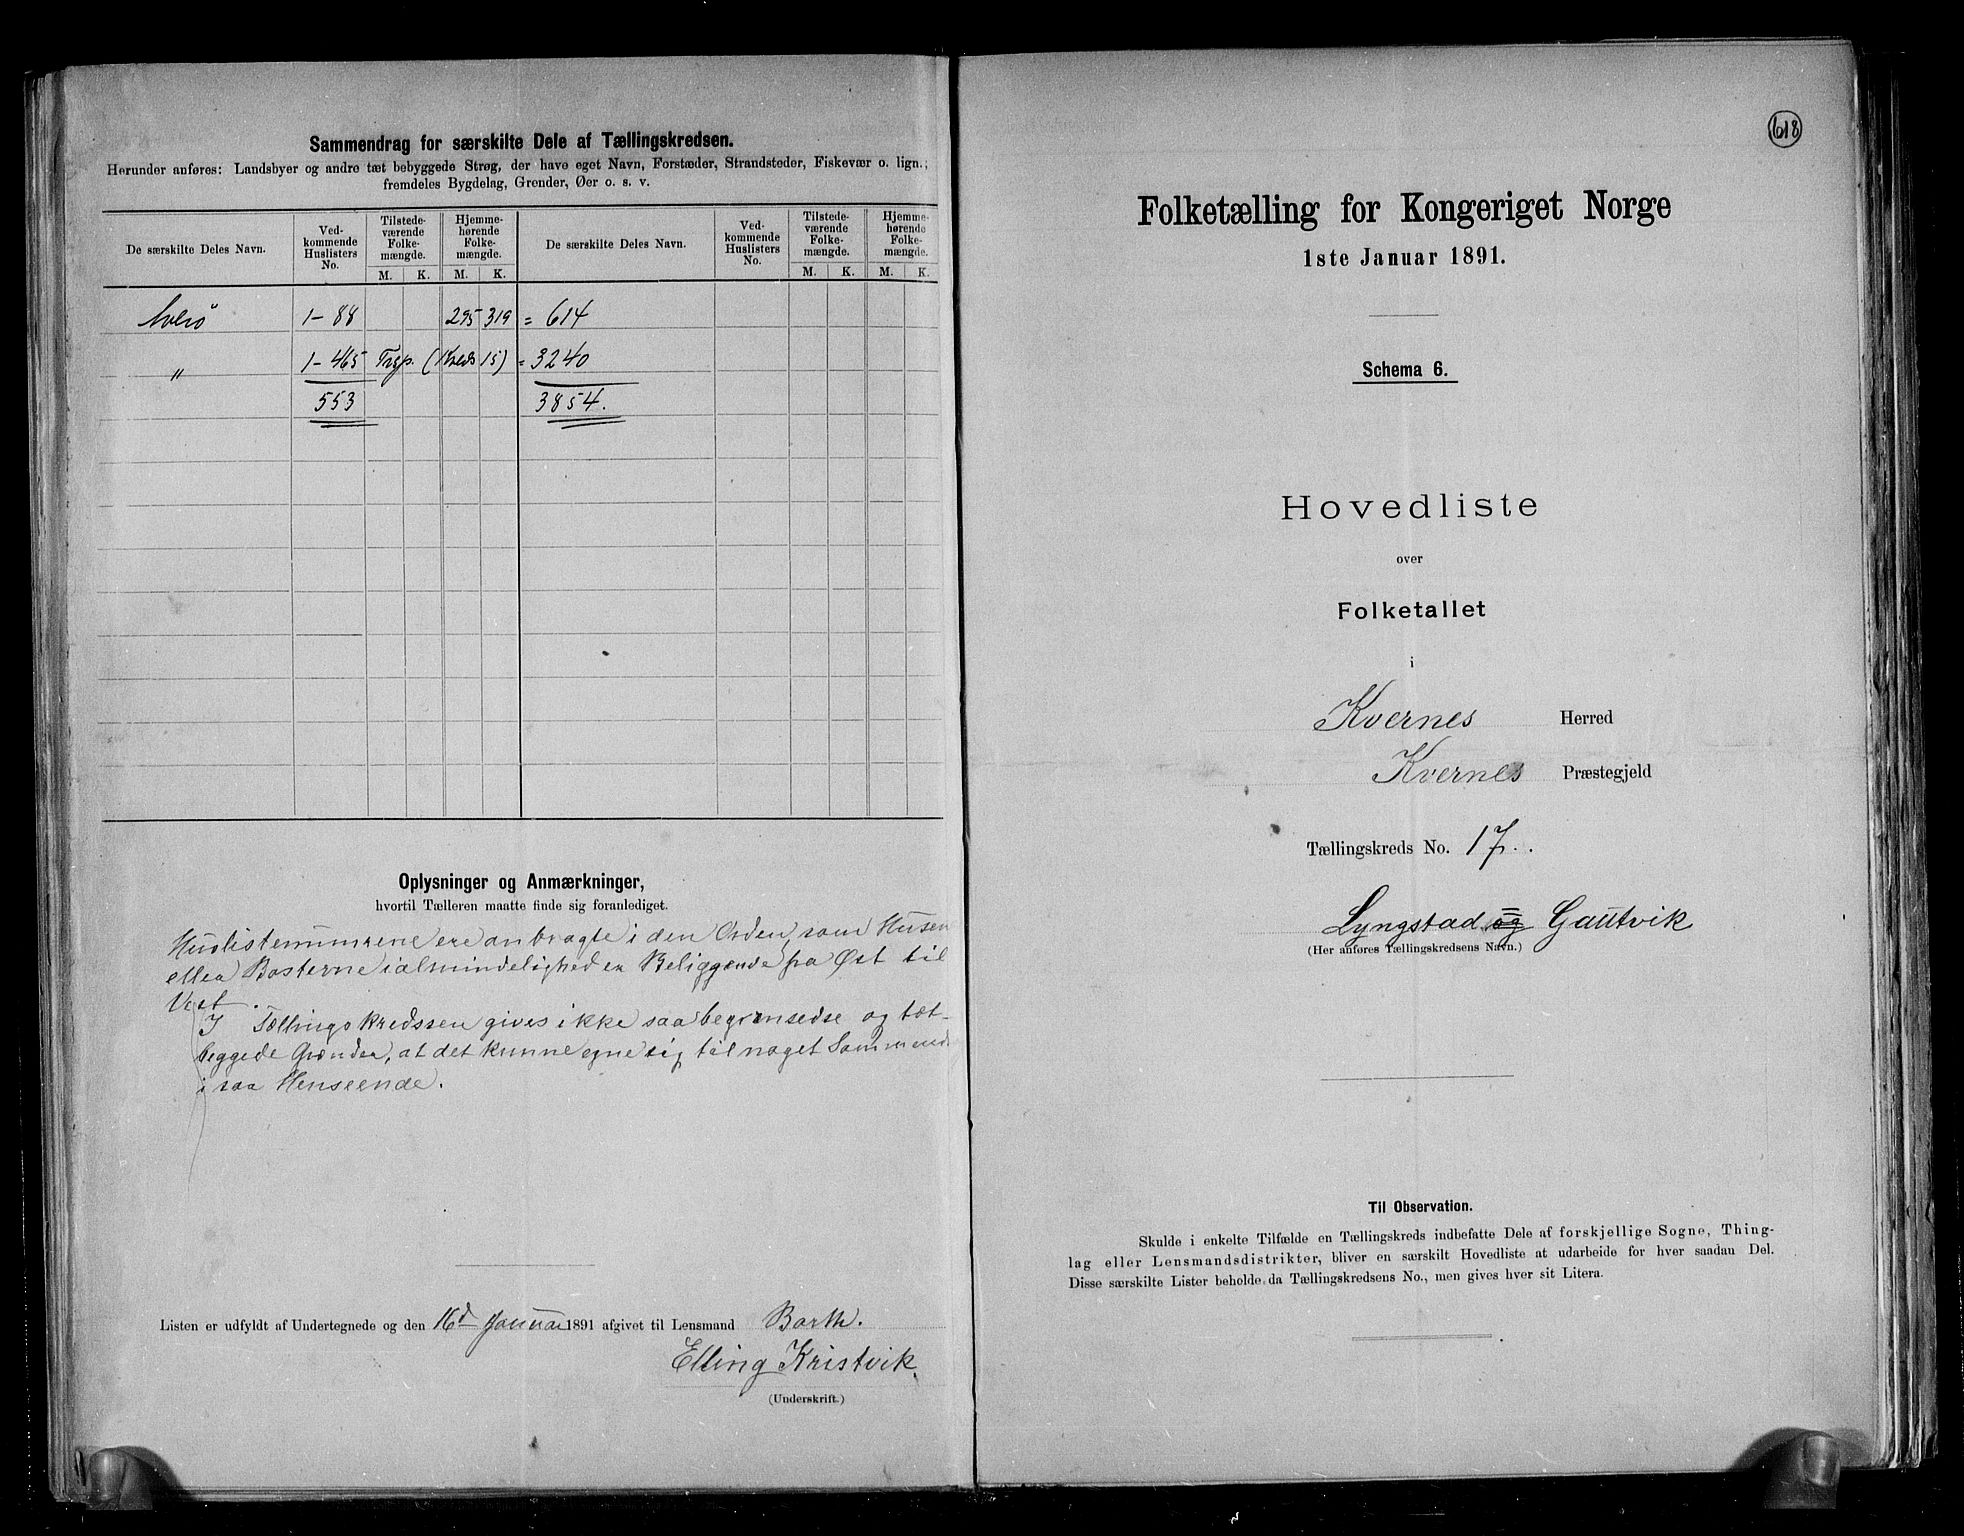 Sammendrag for særskilte Dele af Tællingskredsen.
Herunder anføres: Landsbyer og andre tæt bebyggede Strøg, der have eget Navn, Forstæder, Strandsteder, Fiskevær o. lign.;
fremdeles Bygdelag, Grender, Øer o. s. v.
De særskilte Deles Navn. Ved-kommende Huslisters No. Tilstede-værende Folke-mængde. Hjemme-hørende Folke-mængde. De særskilte Deles Navn. Ved-kommende Huslisters No. Tilstede-værende Folke-mængde. Hjemme-hørende Folke-mængde.
M. K. M. K. M. K. M. K.
Averø 1-88 295 319 = 614
" 1-465 Trsp. (Kreds 15) = 3240
553 3854.
Oplysninger og Anmærkninger,
hvortil Tælleren maatte finde sig foranlediget.
Huslistenumrene ere anbragte i den Orden, som Husene
eller Bosterne i almindelighed er Beliggende fra Øst til
Vest.
I Tællingskredssen gives ikke saa begrænsedse og tæt-
beggede Grender, at det kunne egne sig til noget Sammend
i saa Henseende.
Listen er udfyldt af Undertegnede og den 16d Januar 1891 afgivet til Lensmand Barth.
Elling Kristvik.
(Underskrift.)
618
Folketælling for Kongeriget Norge
1ste Januar 1891.
Schema 6.
Hovedliste
over
Folketallet
i
Kvernes Herred
Kvernes Præstegjeld
Tællingskreds No. 17.
Lyngstad og Gautvik
(Her anføres Tællingskredsens Navn.)
Til Observation.
Skulde i enkelte Tilfælde en Tællingskreds indbefatte Dele af forskjellige Sogne, Thing-
lag eller Lensmandsdistrikter, bliver en særskilt Hovedliste at udarbeide for hver saadan Del.
Disse særskilte Lister beholde da Tællingskredsens No., men gives hver sit Litera.